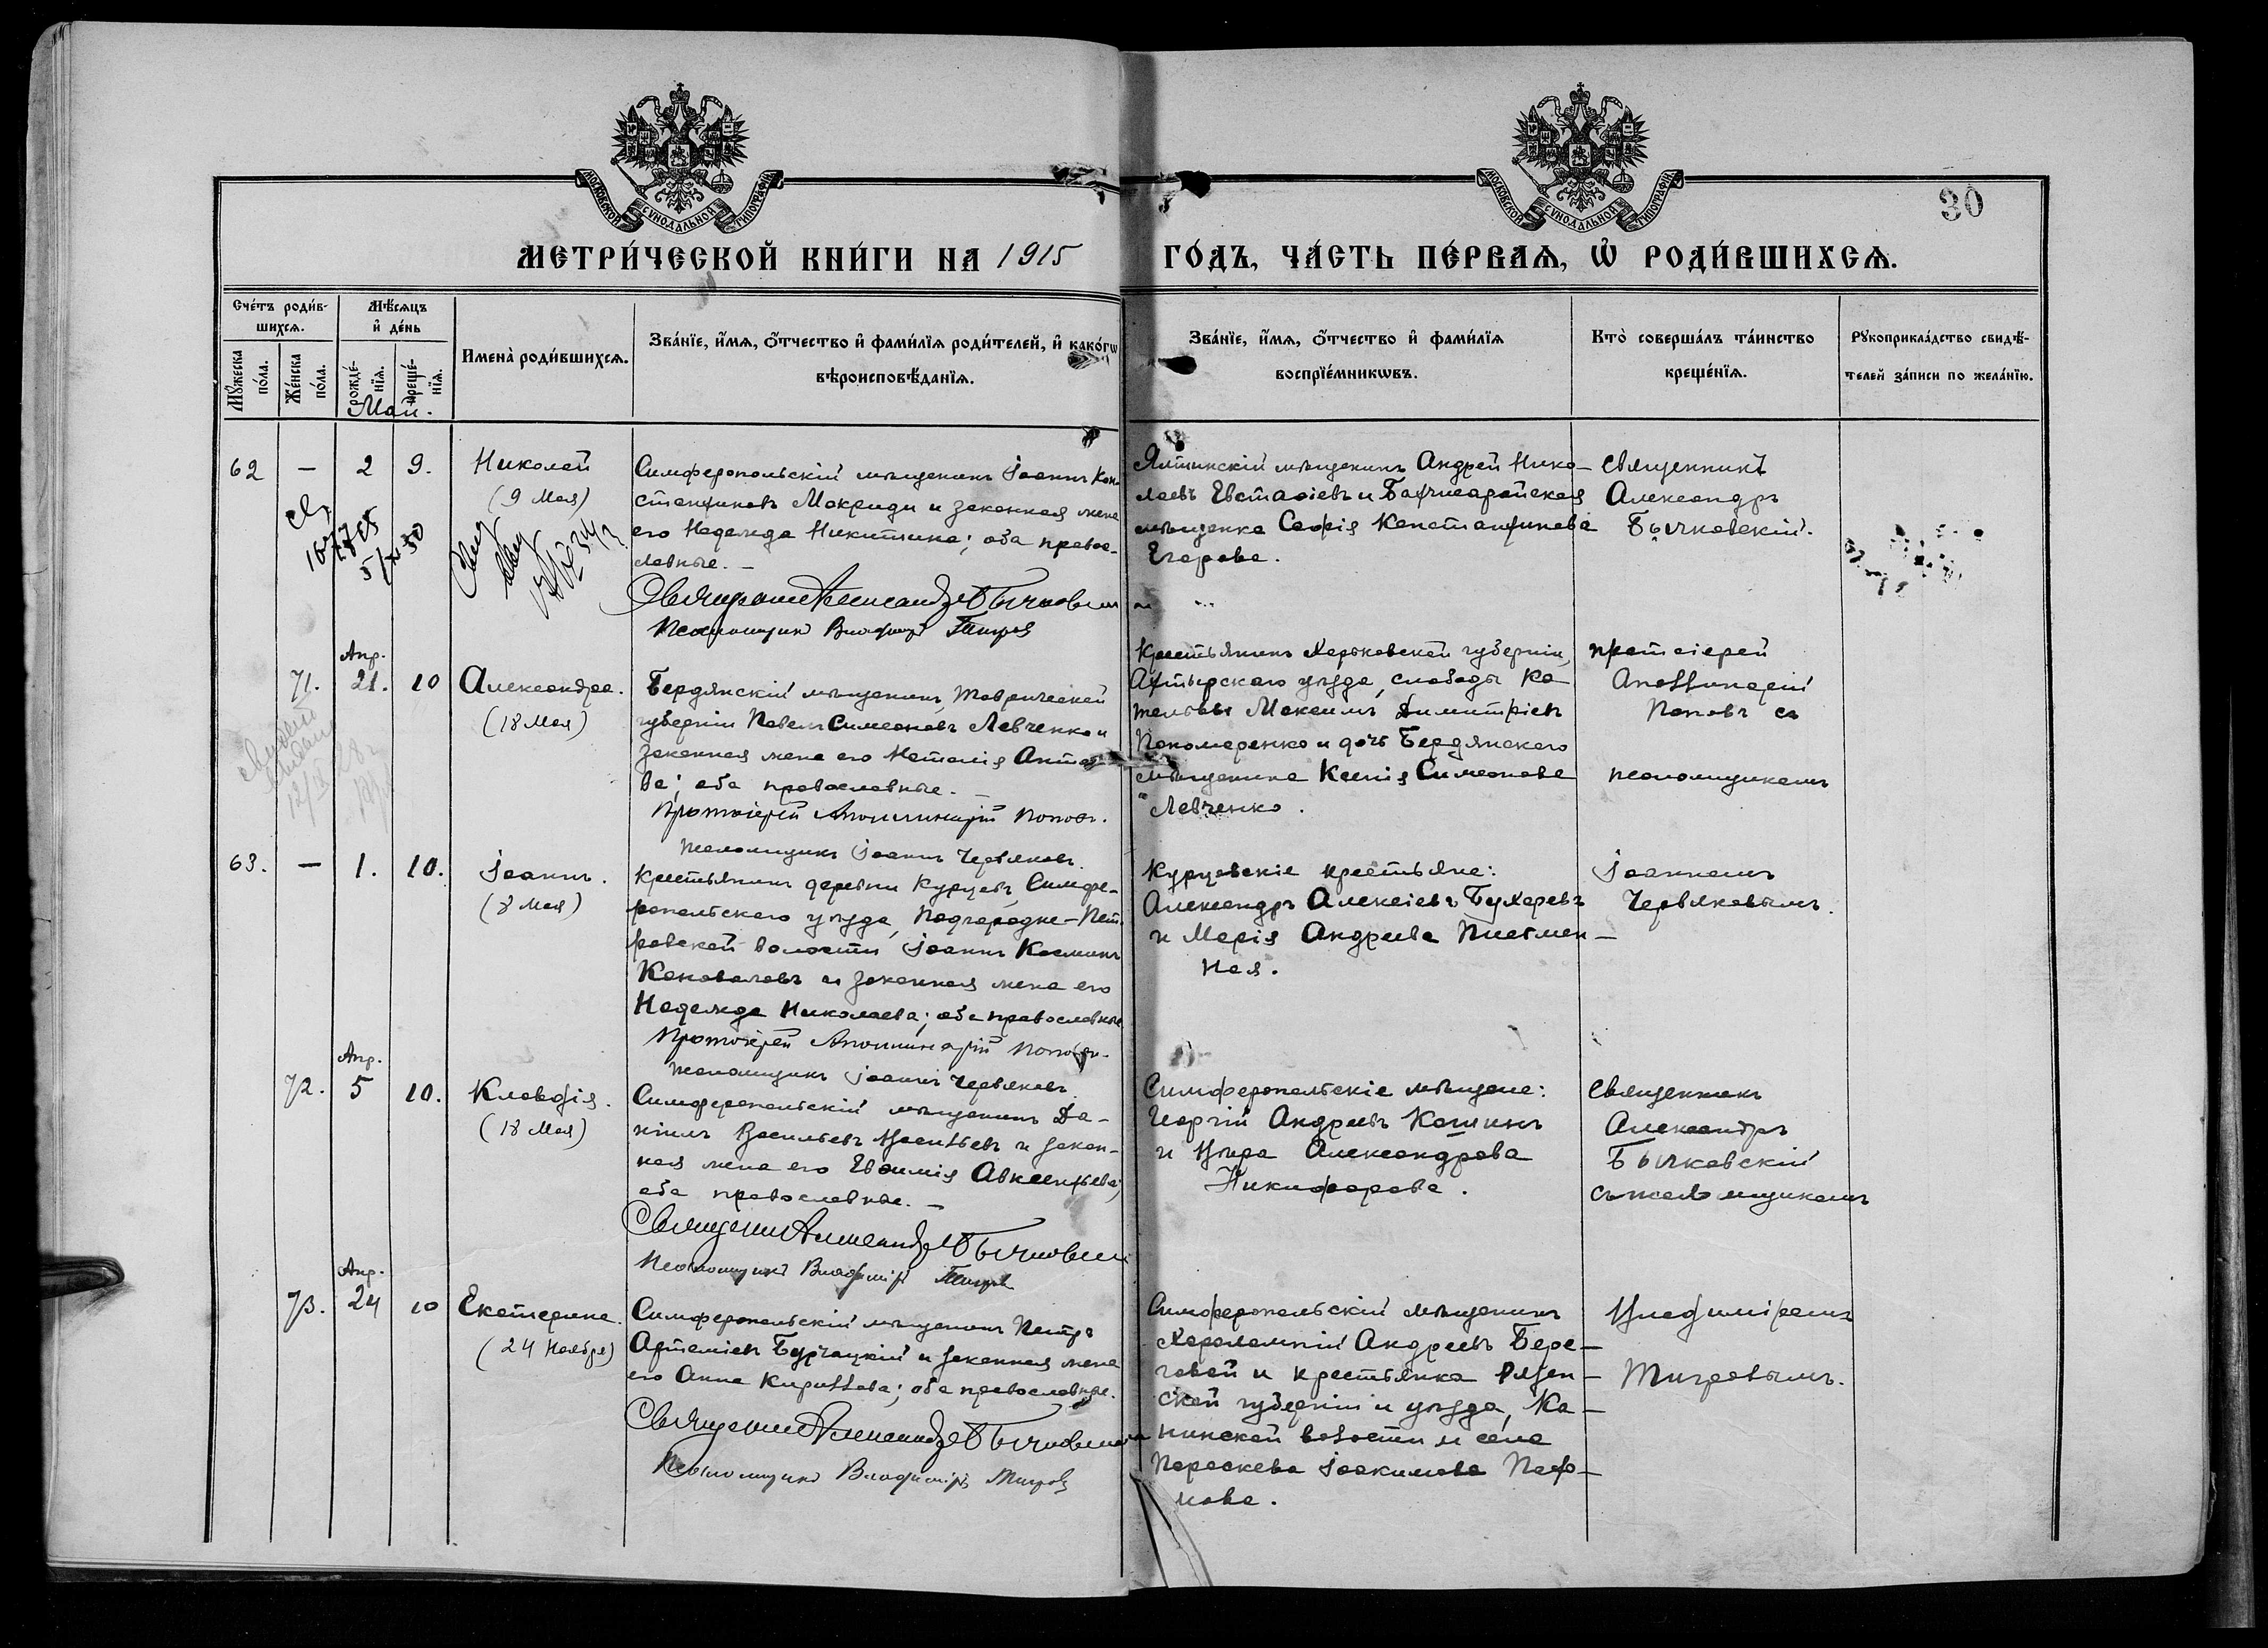 МОСКОВСКОЙ СѴНОДАЛЬНОЙ ТИПОГРАФІИ
МОСКОВСКОЙ СѴНОДАЛЬНОЙ ТИПОГРАФІИ
30
МЕТРИ́ЧЕСКОЙ КНИ́ГИ НА 1915 ГО́ДЪ, ЧА́СТЬ ПЕ́РВАѦ, Ѽ РОДИ́ВШИХСѦ.
Сче́тъ роди́в-
шихсѧ.
Мꙋ́жеска
по́ла.
Же́нска
по́ла.
Мѣ́сѧцъ
и҆ де́нь
рожде́-
нїѧ.
креще́-
нїѧ.
Май.
Имена̀ роди́вшихсѧ.
Зва́нїе, и҆́мѧ, ѻ҆́тчество и҆ фами́лїѧ роди́телей, и҆ како́гѡ
вѣроисповѣ́данїѧ.
Зва́нїе, и҆́мѧ, ѻ҆́тчество и҆ фами́лїѧ
воспрїе́мникѡвъ.
Кто̀ соверша́лъ та́инство
креще́нїѧ.
Рꙋкоприкла́дство свидѣ́-
телей за́писи по жела́нїю.
62 — 2 9.
Николай
(9 Мая)
Симферопольскій мѣщанинъ Іоаннъ Кон-
стантиновъ Макриди и законная жена
его Надежда Никитина; оба православ-
славные. —
Священникъ Александръ Бычковскій
Псаломщикъ Владиміръ Тигровъ
Ялтинскій мѣщанинъ Андрей Нико-
лаевъ Евстаѳіевъ и Бахчисарайская
мѣщанка Софія Константинова
Егорова.
Священникъ
Александръ
Бычковскій.
Апр.
71. 21. 10
Александра.
(18 Мая)
Бердянскій мѣщанинъ, Таврической
губерніи Павелъ Симеоновъ Левченко и
законная жена его Наталія Антоно-
ва; оба православные. —
Протоіерей Аполлинарій Поповъ.
Псаломщикъ Іоаннъ Червяковъ.
Крестьянинъ Харьковской губерніи,
Ахтырскаго уѣзда, слободы Ко-
тельвы Максимъ Димитріевъ
Пономаренко и дочь Бердянскаго
мѣщанина Ксенія Симеонова
Левченко.
протоіерей
Аполлинарій
Поповъ съ
псаломщикомъ
63. — 1. 10.
Іоаннъ.
(8 Мая)
Крестьянинъ деревни Курцевъ, Симфе-
ропольскаго уѣзда, Подгородне-Пет-
ровской волости Іоаннъ Косминъ
Коноваловъ и законная жена его
Надежда Николаева; оба православные
Протоіерей Аполлинарій Поповъ.
Псаломщикъ Іоаннъ Червяковъ.
Курцовскіе крестьяне:
Александръ Алексіевъ Бухаревъ
и Марія Андреева Писмен-
ная.
Іоанномъ
Червяковымъ.
Апр.
72. 5 10.
Клавдія.
(18 Мая)
Симферопольскій мѣщанинъ Да-
ніилъ Васильевъ Васильевъ и закон-
ная жена его Евѳимія Авксентьева;
оба православные. —
Священникъ Александръ Бычковскій
Псаломщикъ Владиміръ Тигровъ
Симферопольскіе мѣщане:
Георгій Андреевъ Кашинъ
и Кира Александрова
Никифорова.
Священникъ
Александръ
Бычковскій
съ псаломщикомъ
Апр.
73. 24 10
Екатерина.
(24 Ноября)
Симферопольскій мѣщанинъ Петръ
Артеміевъ Бурчацкій и законная жена
его Анна Кириллова; оба православные.
Священникъ Александръ Бычковскій
Псаломщикъ Владиміръ Тигровъ
Симферопольскій мѣщанинъ
Харалампій Андреевъ Бере-
говой и крестьянка Рязан-
ской губерніи и уѣзда, Ка-
нинской волости и села
Параскева Іоакимова Пафо-
мова.
Владиміромъ
Тигровымъ.